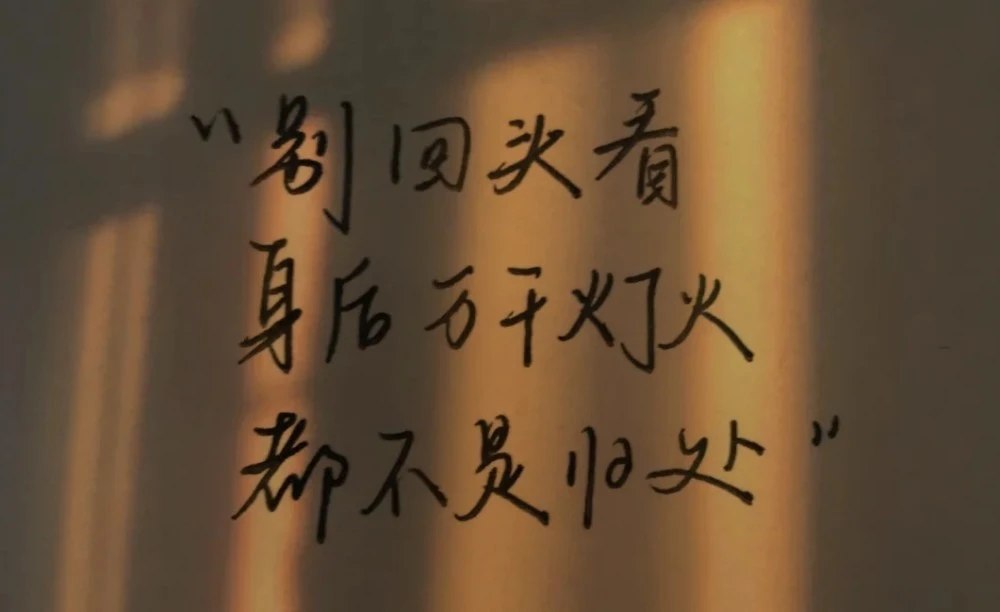 “别回头看
身后万千灯火
都不是归处”